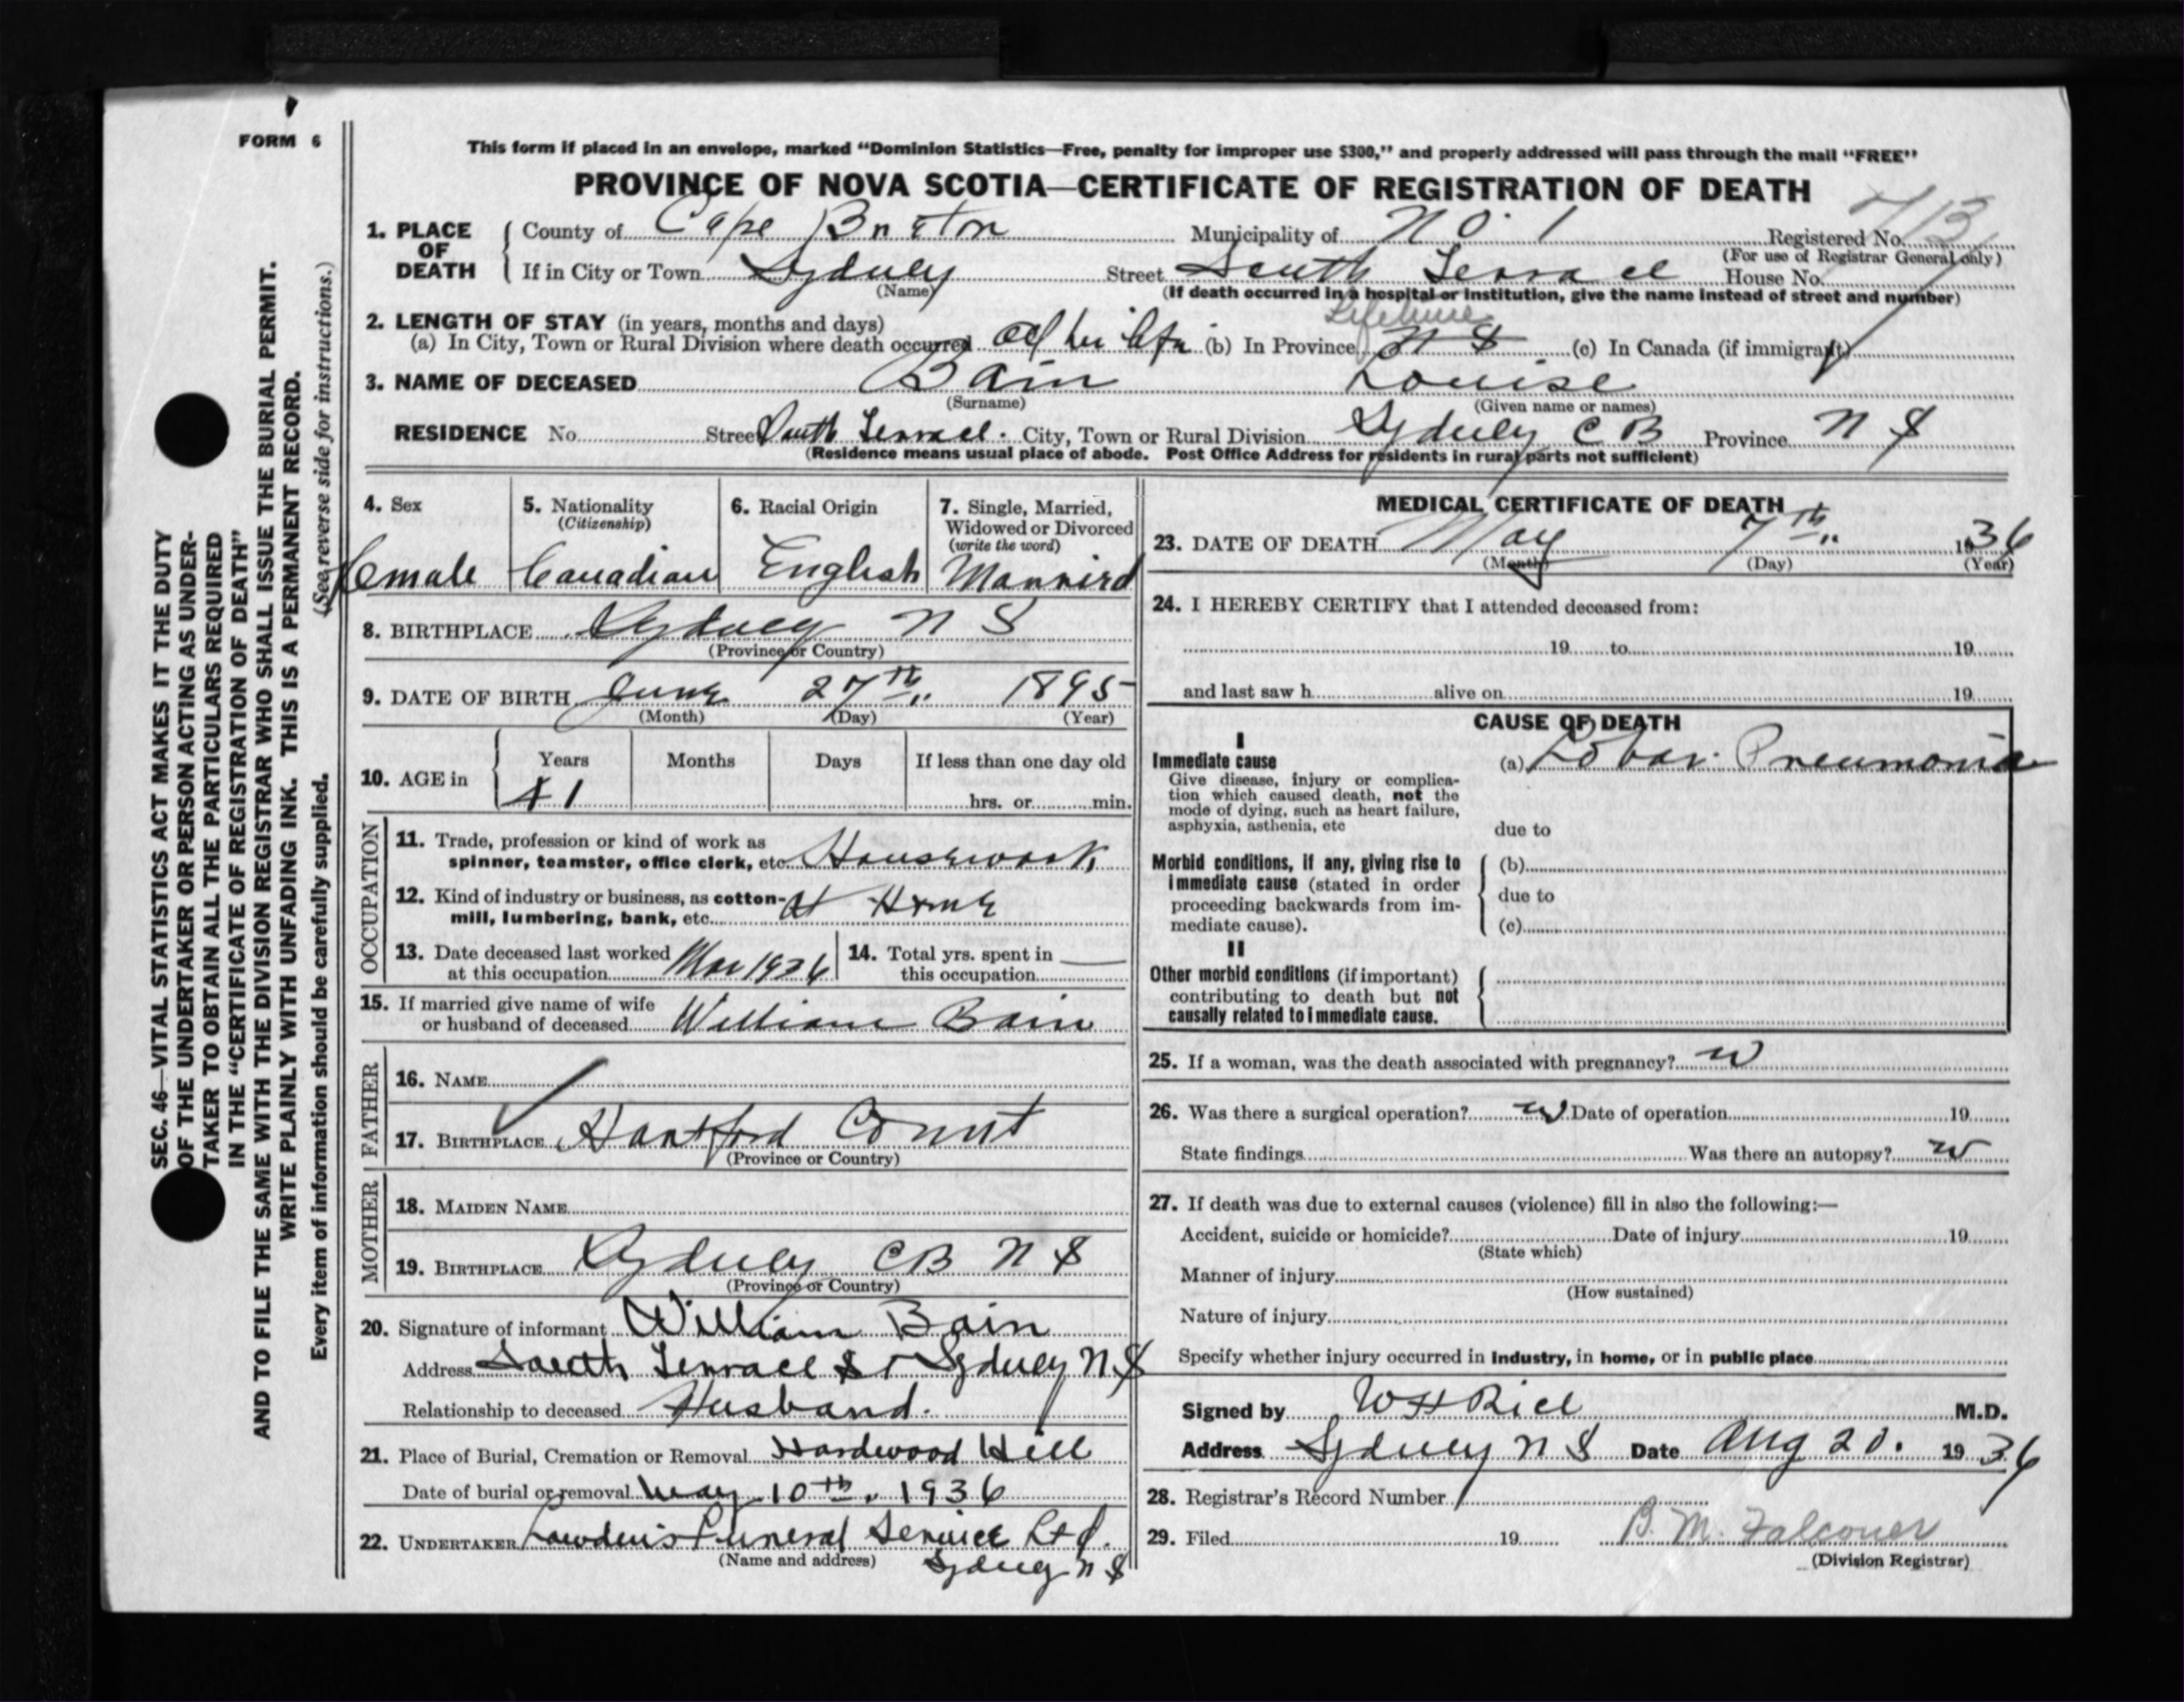 FORM 6
This form if placed in an envelope, marked "Dominion Statistics—Free, penalty for improper use $300," and properly addressed will pass through the mail "FREE"
PROVINCE OF NOVA SCOTIA—CERTIFICATE OF REGISTRATION OF DEATH
1. PLACE OF DEATH County of Cape Breton Municipality of No. 1 Registered No.
(For use of Registrar General only)
If in City or Town Sydney Street South Terrace House No.
(Name)
(If death occurred in a hospital or institution, give the name instead of street and number)
2. LENGTH OF STAY (in years, months and days)
Lifetime
(a) In City, Town or Rural Division where death occurred all her life (b) In Province N S (c) In Canada (if immigrant)
3. NAME OF DECEASED Bain Louise
(Surname) (Given name or names)
RESIDENCE No. Street South Terrace. City, Town or Rural Division Sydney C B Province N S
(Residence means usual place of abode. Post Office Address for residents in rural parts not sufficient)
4. Sex 5. Nationality (Citizenship) 6. Racial Origin 7. Single, Married, Widowed or Divorced (write the word)
Female Canadian English Married
8. BIRTHPLACE Sydney N S
(Province or Country)
9. DATE OF BIRTH June 27th 1895
(Month) (Day) (Year)
10. AGE in Years Months Days If less than one day old
41 hrs. or min.
OCCUPATION
11. Trade, profession or kind of work as
spinner, teamster, office clerk, etc. Housework
12. Kind of industry or business, as cotton-
mill, lumbering, bank, etc. At Home
13. Date deceased last worked
at this occupation Mar 1936
14. Total yrs. spent in
this occupation
15. If married give name of wife
or husband of deceased William Bain
FATHER
16. NAME
17. BIRTHPLACE Hartford Connt
(Province or Country)
MOTHER
18. MAIDEN NAME
19. BIRTHPLACE Sydney CB N S
(Province or Country)
20. Signature of informant William Bain
Address South Terrace St Sydney N S
Relationship to deceased Husband.
21. Place of Burial, Cremation or Removal Hardwood Hill
Date of burial or removal May 10th. 1936
22. UNDERTAKER Lowden's Funeral Service Ltd.
(Name and address) Sydney N S
MEDICAL CERTIFICATE OF DEATH
23. DATE OF DEATH May 7th 1936
(Month) (Day) (Year)
24. I HEREBY CERTIFY that I attended deceased from:
19 to 19
and last saw h alive on 19
CAUSE OF DEATH
I
Immediate cause (a) Lobar Pneumonia
Give disease, injury or complica-
tion which caused death, not the
mode of dying, such as heart failure,
asphyxia, asthenia, etc
due to
Morbid conditions, if any, giving rise to (b)
immediate cause (stated in order
proceeding backwards from im-
mediate cause).
due to
(c)
II
Other morbid conditions (if important)
contributing to death but not
causally related to immediate cause.
25. If a woman, was the death associated with pregnancy?
26. Was there a surgical operation? Date of operation 19
State findings Was there an autopsy?
27. If death was due to external causes (violence) fill in also the following:—
Accident, suicide or homicide? Date of injury 19
(State which)
Manner of injury
(How sustained)
Nature of injury
Specify whether injury occurred in industry, in home, or in public place
Signed by W H Rice M.D.
Address Sydney N S Date Aug 20. 1936
28. Registrar's Record Number
29. Filed 19 B. M. Falconer
(Division Registrar)
SEC. 46—VITAL STATISTICS ACT MAKES IT THE DUTY
OF THE UNDERTAKER OR PERSON ACTING AS UNDER-
TAKER TO OBTAIN ALL THE PARTICULARS REQUIRED
IN THE "CERTIFICATE OF REGISTRATION OF DEATH"
AND TO FILE THE SAME WITH THE DIVISION REGISTRAR WHO SHALL ISSUE THE BURIAL PERMIT.
WRITE PLAINLY WITH UNFADING INK. THIS IS A PERMANENT RECORD.
Every item of information should be carefully supplied. (See reverse side for instructions.)